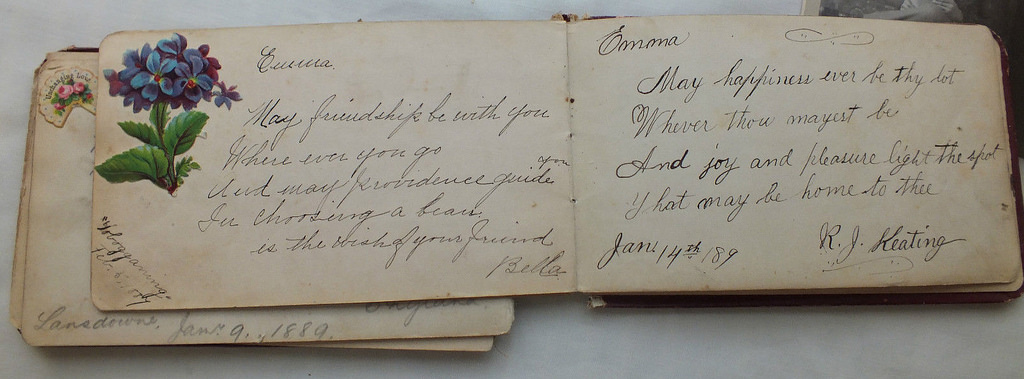 Unchanging Love
Emma.
May friendship be with you
Where ever you go
And may providence guide you
In choosing a beau.
is the wish of your friend
Bella
"Tobogganing"
Feb.
Lansdowne, Jan. 9., 1889.
Emma
May happiness ever be thy lot
Whever thou mayest be
And joy and pleasure light the spot
That may be home to thee
Jan. 14th 189
R. J. Keating